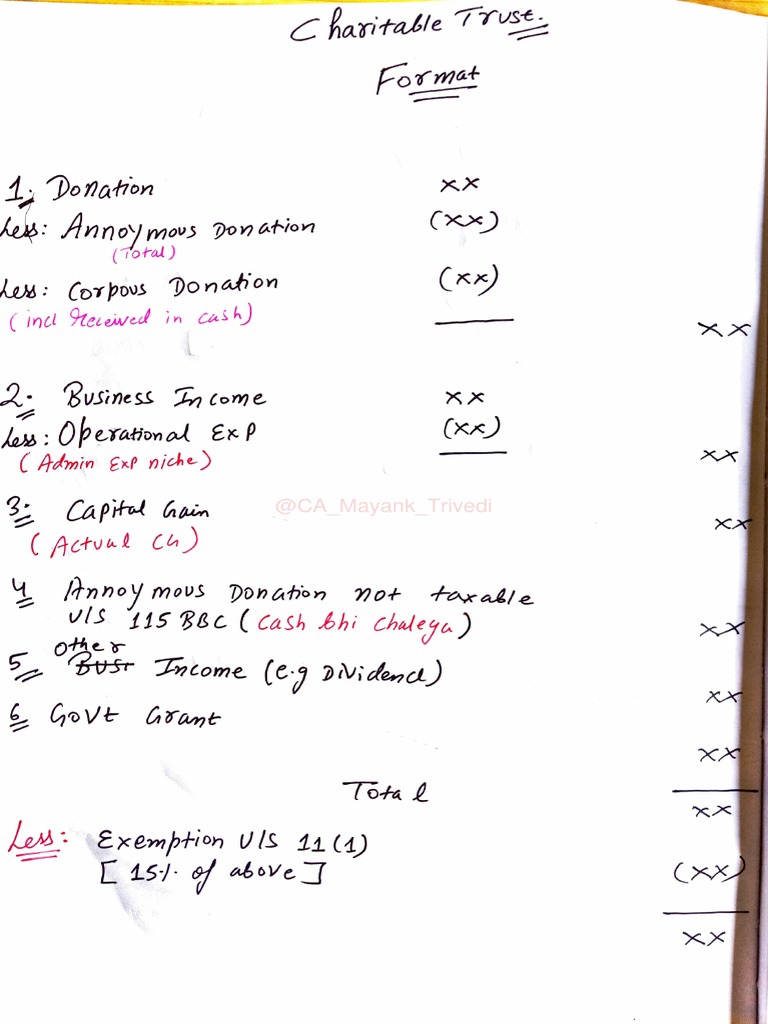 Charitable Trust.
Format
1. Donation xx
Less: Annoymous Donation (xx)
(Total)
Less: Corpous Donation (xx)
(incl Received in cash) xx
2. Business Income xx
Less: Operational Exp (xx)
(Admin Exp niche) xx
3. Capital Gain xx
@CA_Mayank_Trivedi
(Actual CG)
4 Annoymous Donation not taxable
U/S 115 BBC (Cash bhi Chalega) xx
5 Other Income (e.g Dividend) xx
6 Govt Grant xx
Total xx
Less: Exemption U/S 11(1)
[15% of above] (xx)
xx